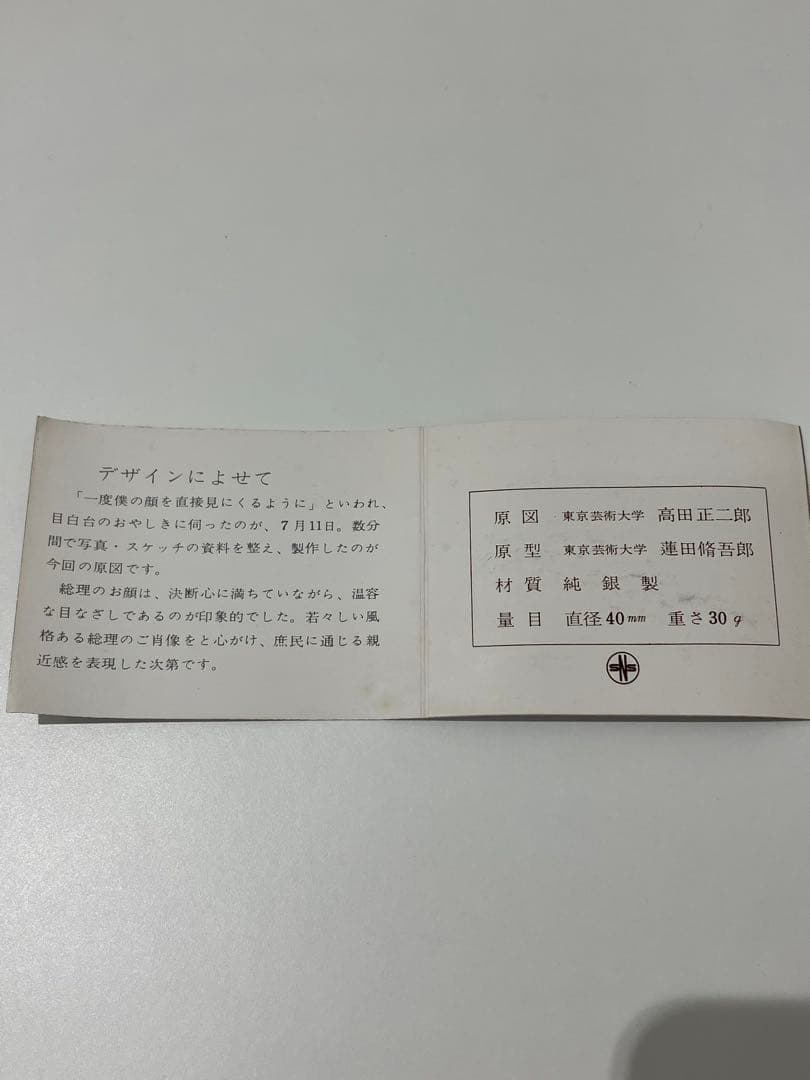 デザインによせて
「一度僕の顔を直接見にくるように」といわれ、
目白台のおやしきに伺ったのが、7月11日。数分
間で写真・スケッチの資料を整え、製作したのが
今回の原図です。
総理のお顔は、決断心に満ちていながら、温容
な目なざしであるのが印象的でした。若々しい風
格ある総理のご肖像をと心がけ、庶民に通じる親
近感を表現した次第です。
原図 東京芸術大学 高田正二郎
原型 東京芸術大学 蓮田脩吾郎
材質 純銀製
量目 直径40mm 重さ30g
SNS